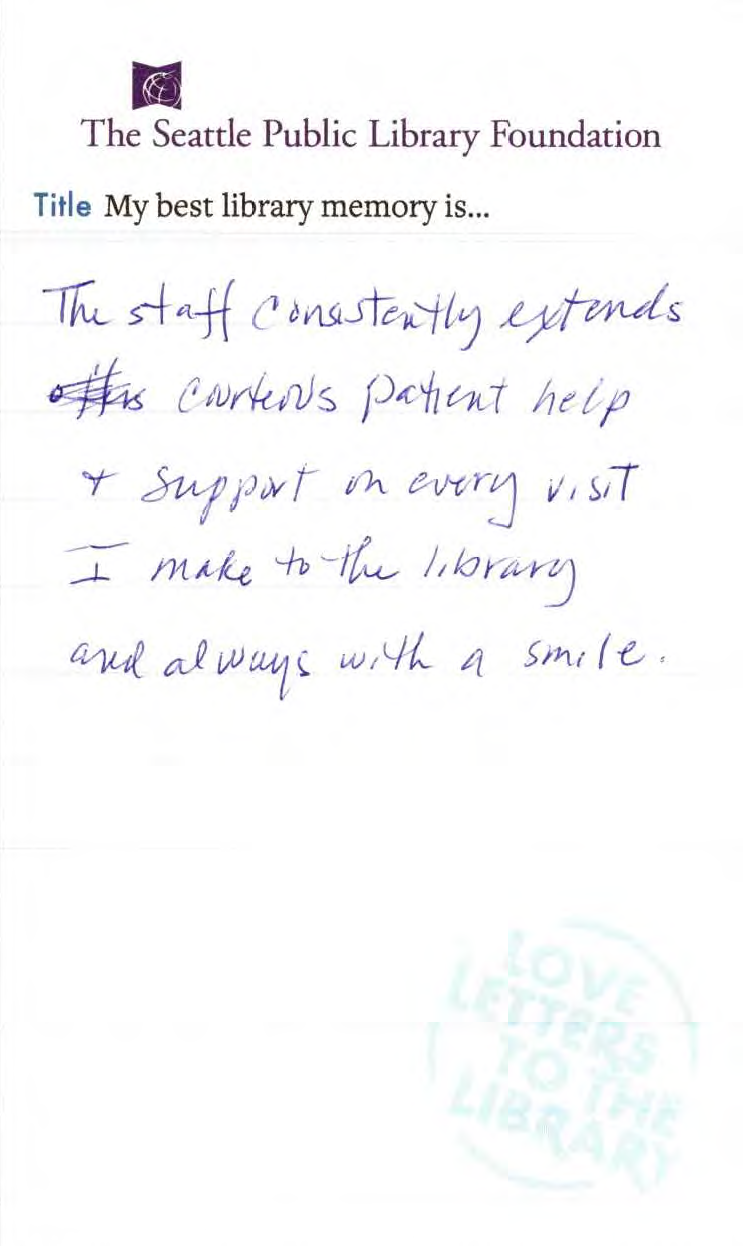 The Seattle Public Library Foundation
Title My best library memory is...
The staff consistently extends
offers courteous patient help
+ support on every visit
I make to the library
and always with a smile.
LOVE
LETTERS
TO THE
LIBRARY